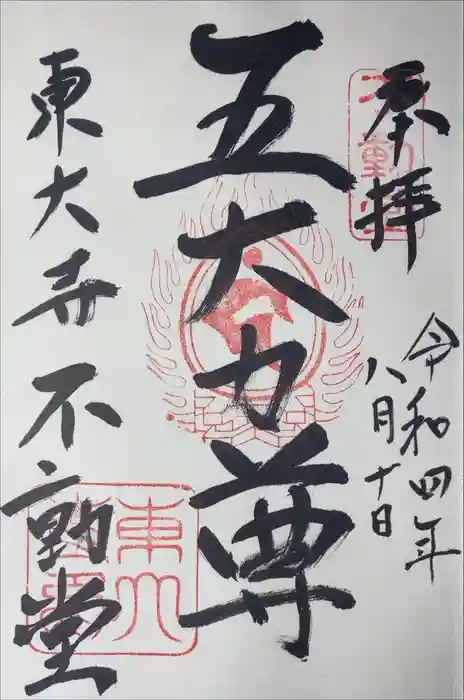 奉拝
令和四年
八月十日
五大力尊
東大寺不動堂